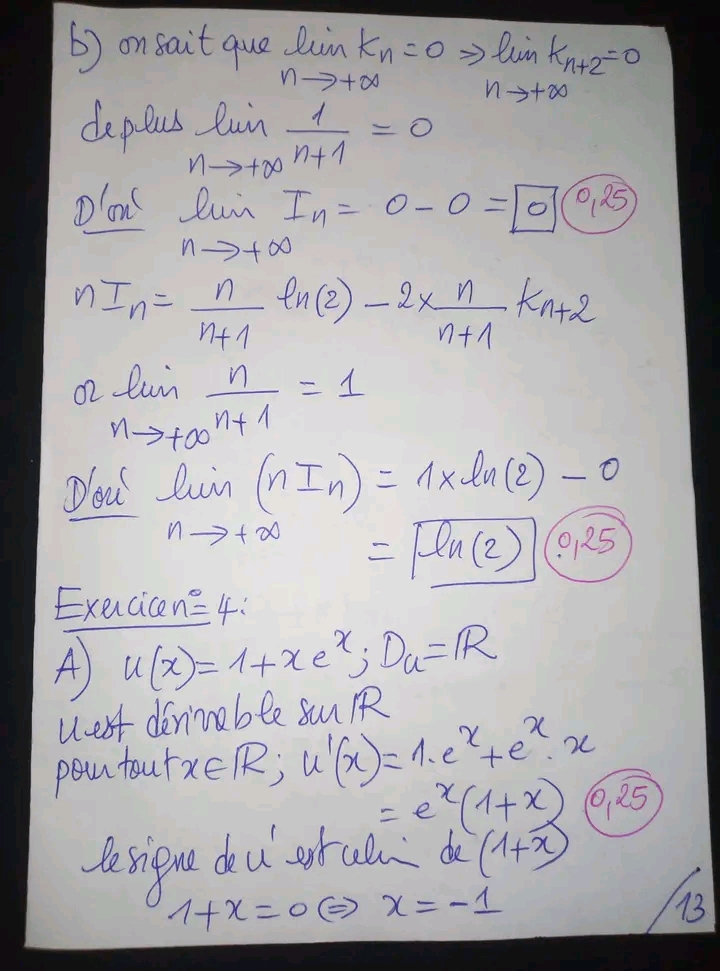 b) on sait que lim Kn = 0 ⇒ lim Kn+2 = 0
n→+∞ n→+∞
de plus lim 1/(n+1) = 0
n→+∞
D'où lim In = 0 - 0 = 0 0,25
n→+∞
nIn = n/(n+1) ln(2) - 2 × n/(n+1) Kn+2
or lim n/(n+1) = 1
n→+∞
D'où lim (nIn) = 1×ln(2) - 0
n→+∞
= ln(2) 0,25
Exercice n°= 4:
A) u(x) = 1 + x e^x ; Du = ℝ
u est dérivable sur ℝ
pour tout x ∈ ℝ ; u'(x) = 1·e^x + e^x · x
= e^x (1+x) 0,25
le signe de u' est celui de (1+x)
1+x = 0 ⇔ x = -1
/13